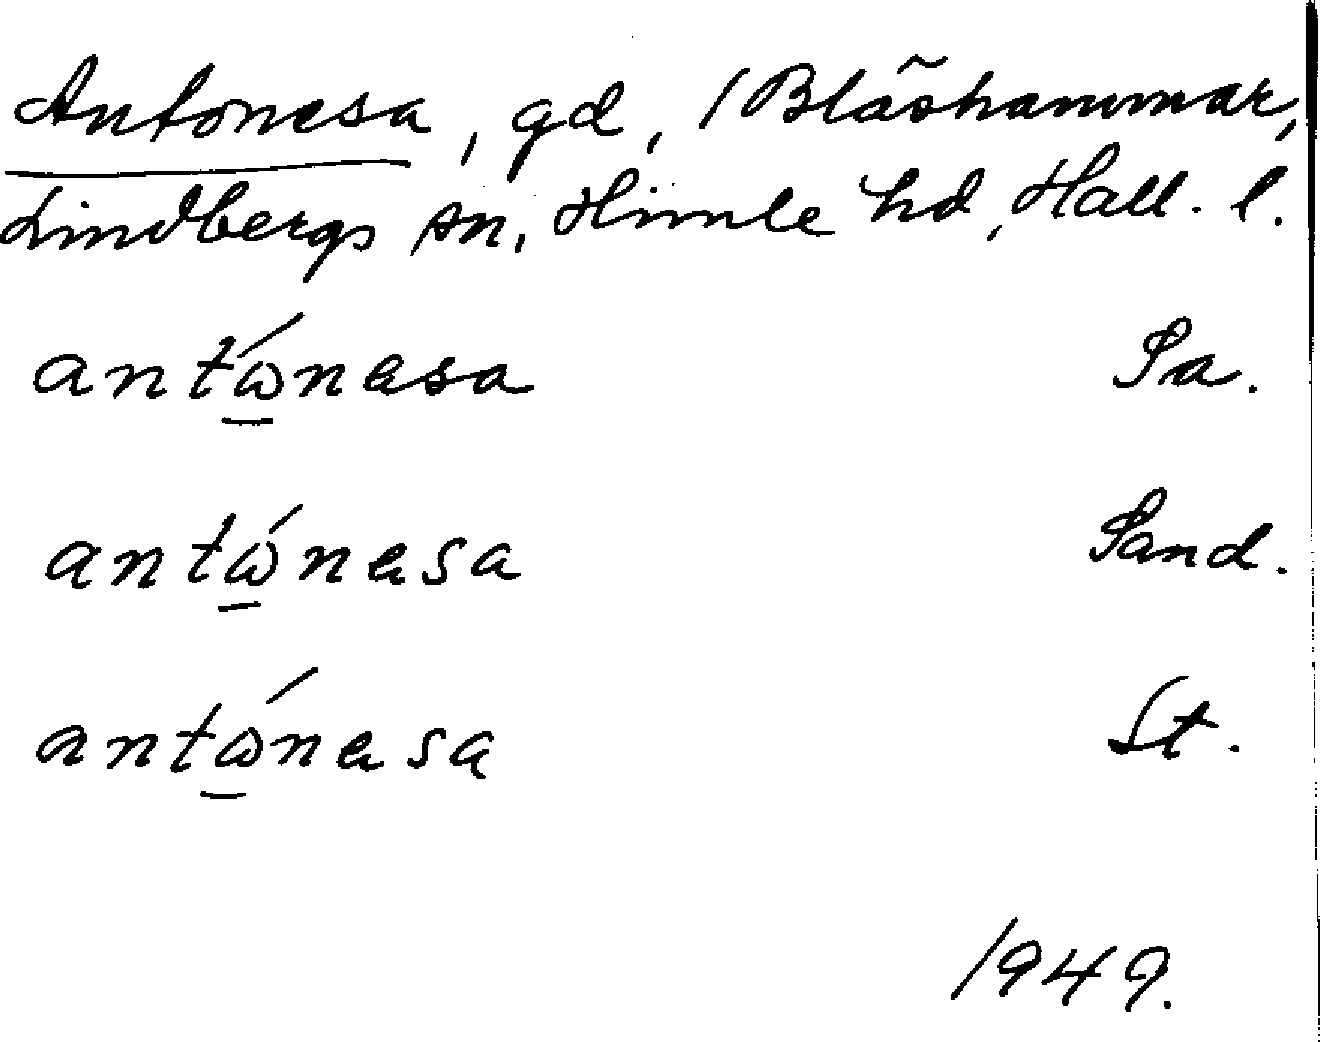 Antonesa, gd, 1 Blåshammar,
Lindbergs sn, Himle hd, Hall. l.
antώ̱nesa Sa.
antώ̱nesa Sand.
antώ̱nesa St.
1949.